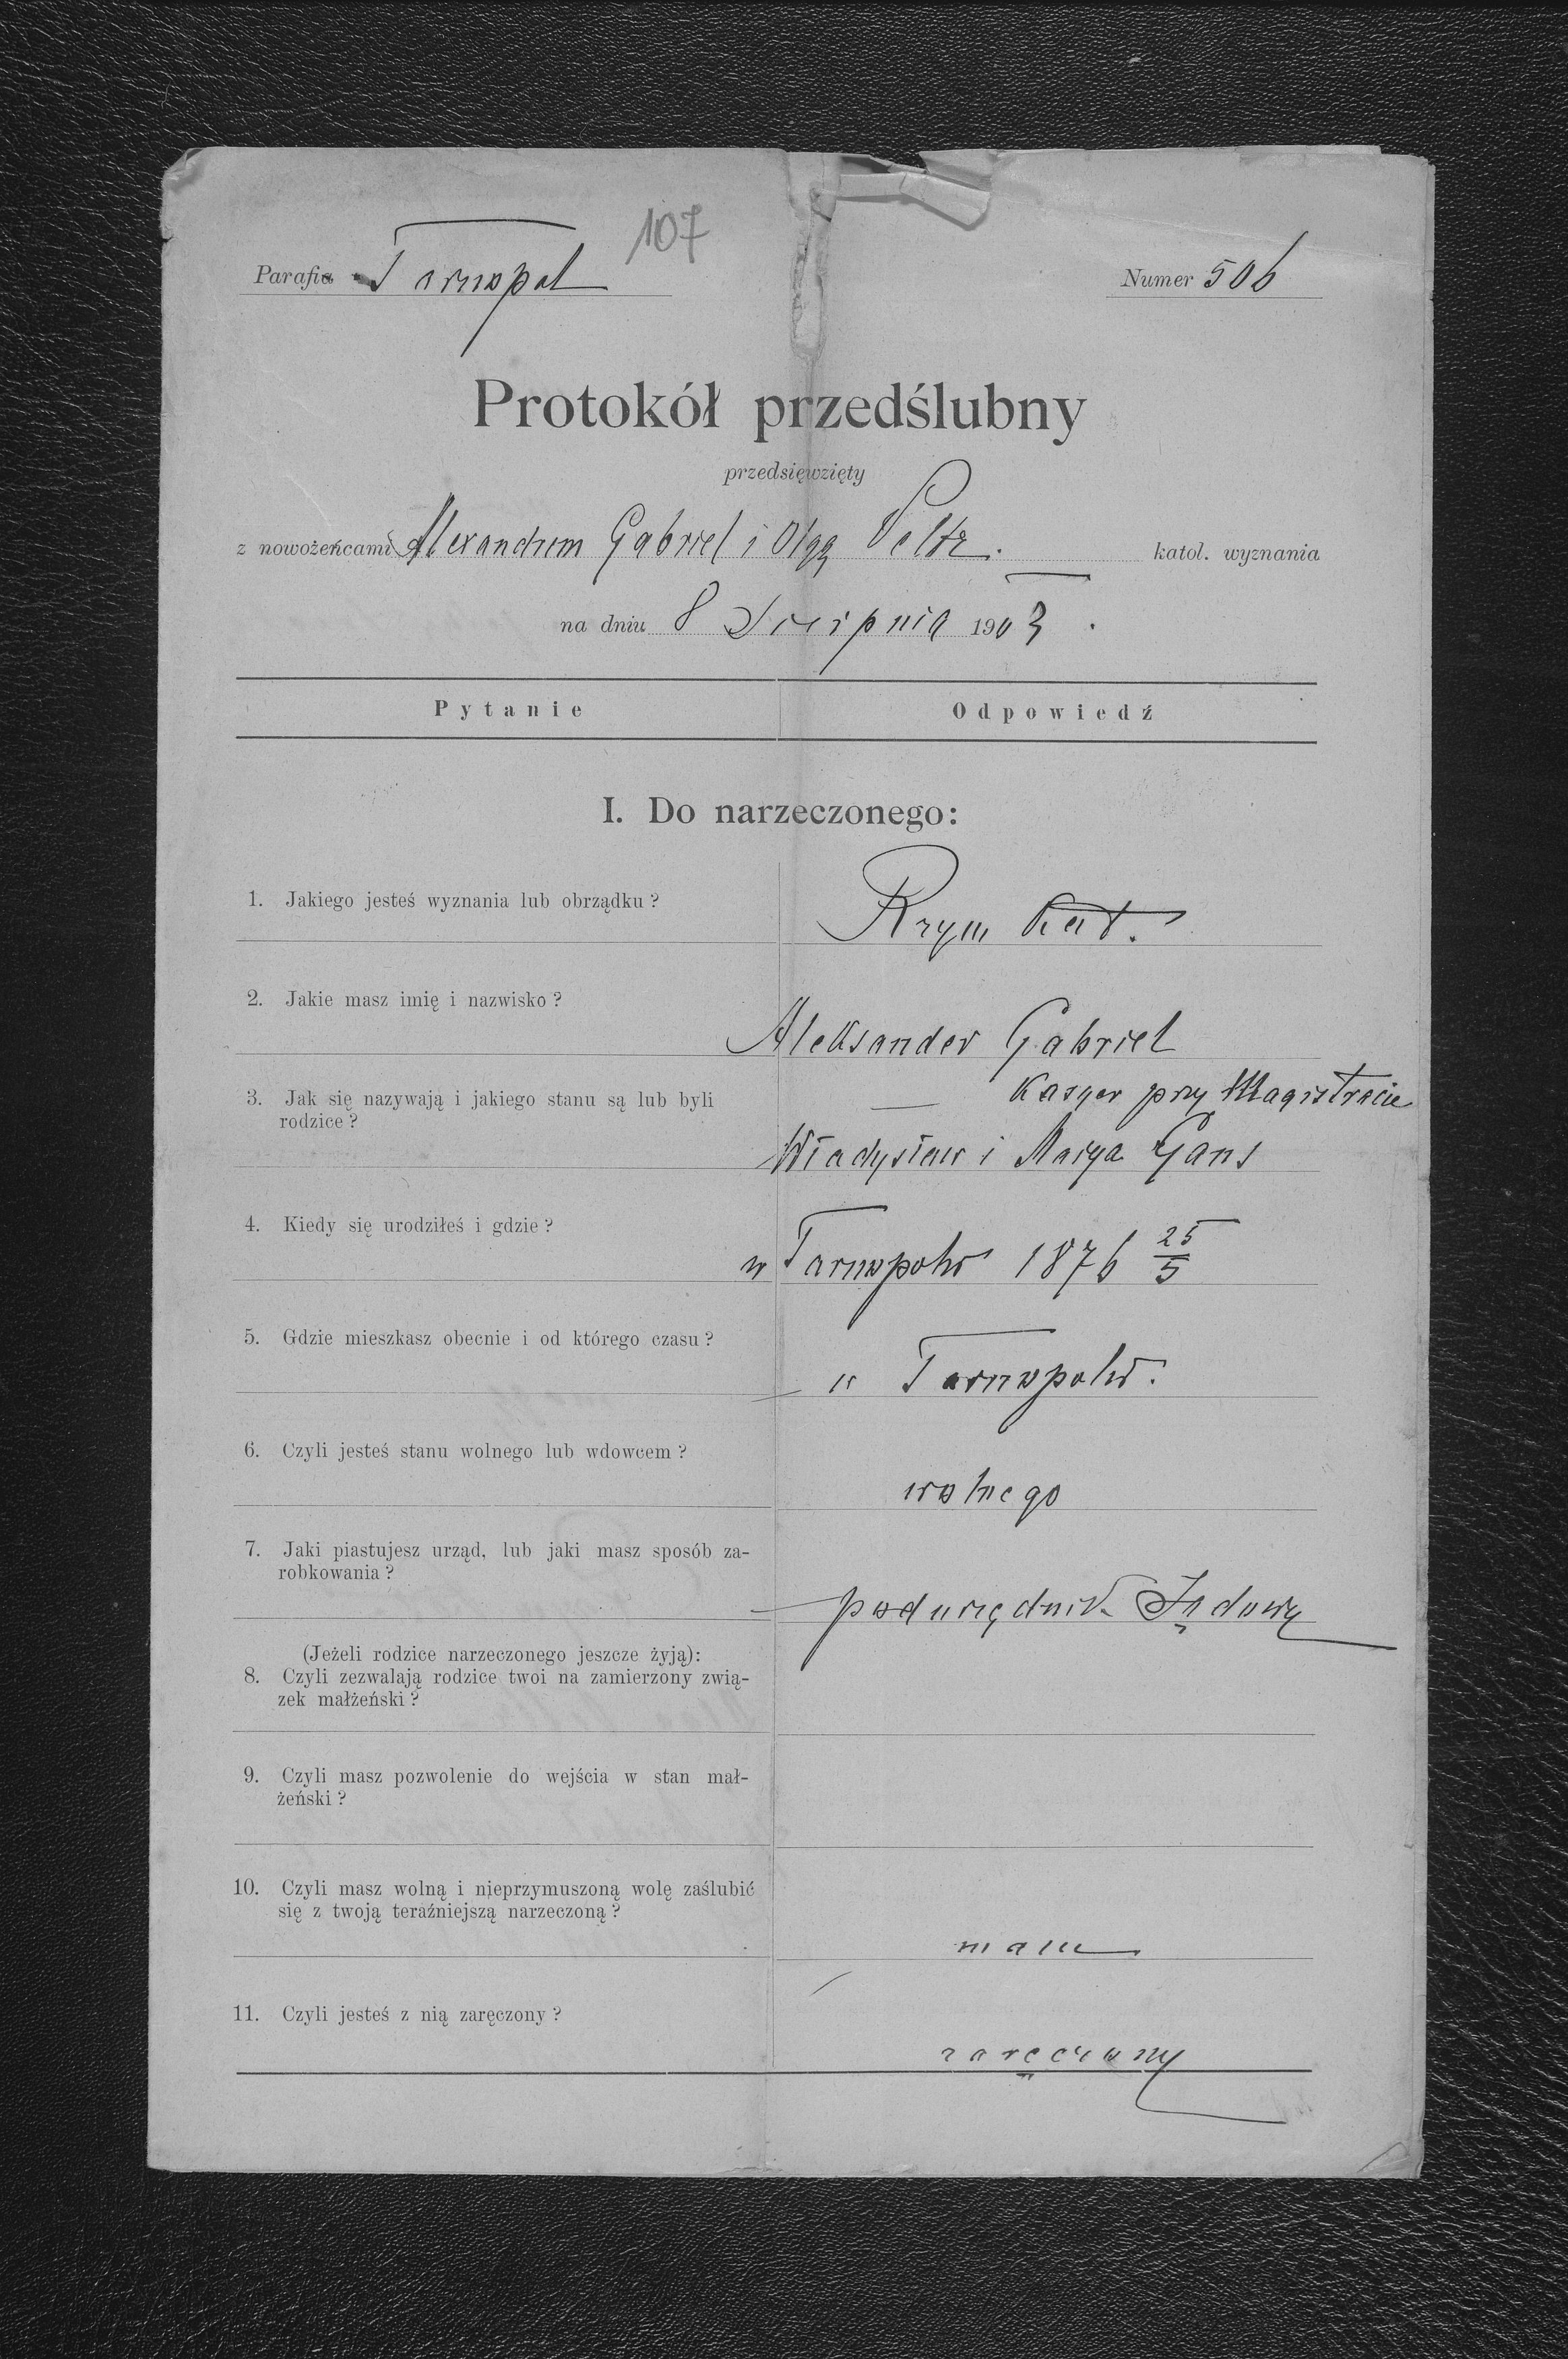 107
Parafia Tarnopol Numer 506
Protokół przedślubny
przedsięwzięty
z nowożeńcami Alexandrem Gabriel i Olgą Veltz. katol. wyznania
na dniu 8 Sierpnia 1903.
Pytanie Odpowiedź
I. Do narzeczonego:
1. Jakiego jesteś wyznania lub obrządku?
Rzym Kat.
2. Jakie masz imię i nazwisko?
Aleksander Gabriel
3. Jak się nazywają i jakiego stanu są lub byli
rodzice?
— Kasyer przy Magistracie
Władysław i Marya Gans
4. Kiedy się urodziłeś i gdzie?
w Tarnopolu 1876 25/5
5. Gdzie mieszkasz obecnie i od którego czasu?
w Tarnopolu.
6. Czyli jesteś stanu wolnego lub wdowcem?
wolnego
7. Jaki piastujesz urząd, lub jaki masz sposób za-
robkowania?
podurzędnik Sądowy
(Jeżeli rodzice narzeczonego jeszcze żyją):
8. Czyli zezwalają rodzice twoi na zamierzony zwią-
zek małżeński?
9. Czyli masz pozwolenie do wejścia w stan mał-
żeński?
10. Czyli masz wolną i nieprzymuszoną wolę zaślubić
się z twoją teraźniejszą narzeczoną?
mam
11. Czyli jesteś z nią zaręczony?
zaręczony